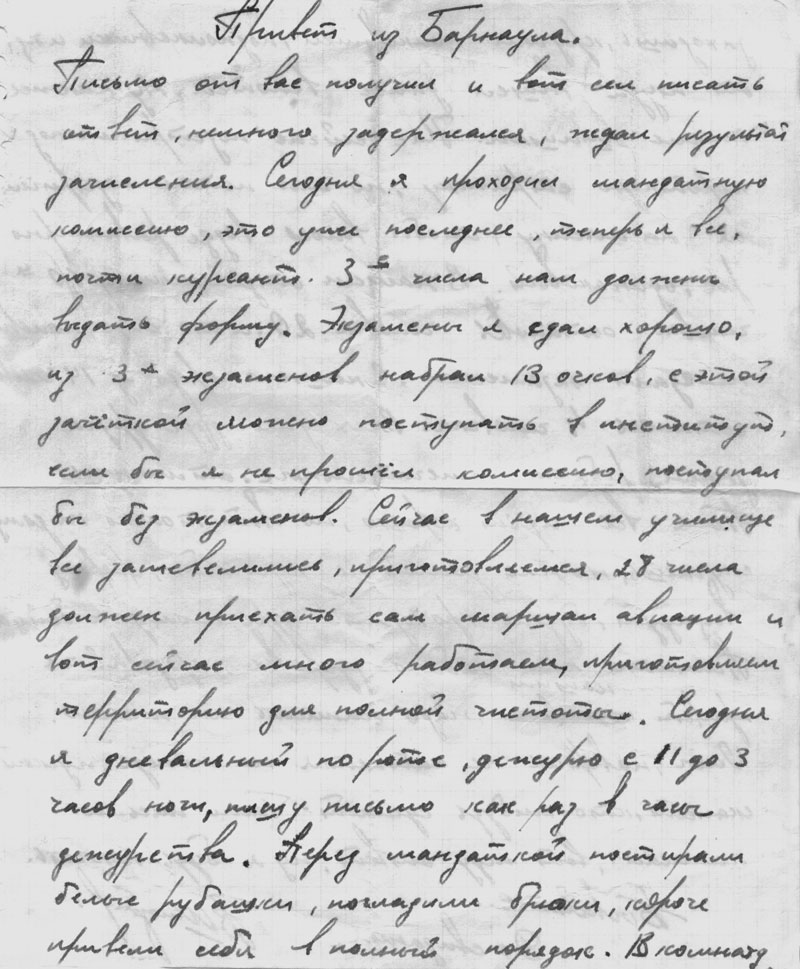 Привет из Барнаула.
Письмо от вас получил и вот сел писать
ответ, немного задержался, ждал результат
зачисления. Сегодня я проходил мандатную
комиссию, это уже последнее, теперь я все,
почти курсант. 3е числа нам должны
выдать форму. Экзамены я сдал хорошо,
из 3х экзаменов набрал 13 очков, с этой
зачёткой можно поступать в институт,
если бы я не прошёл комиссию, поступал
бы без экзаменов. Сейчас в нашем училище
все зашевелились, приготовляемся, 28 числа
должен приехать сам маршал авиации и
вот сейчас много работаем, приготовляем
территорию для полной чистоты. Сегодня
я дневальный по роте, дежурю с 11 до 3
часов ночи, пишу письмо как раз в часы
дежурства. Перед мандаткой постирали
белые рубашки, погладили брюки, короче
привели себя в полный порядок. В комнату